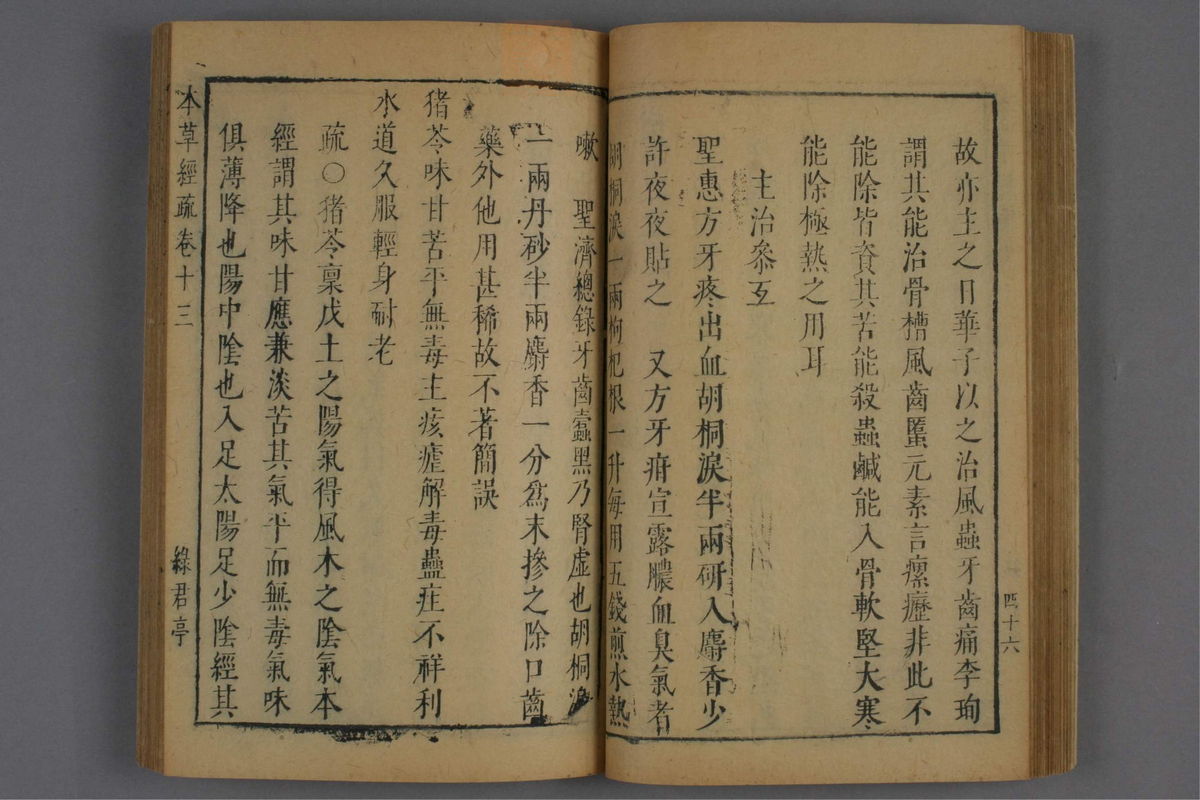 故亦主之日華子以之治風蟲牙齒痛李珣
謂其能治骨槽風齒䘌元素言瘰癧非此不
能除皆資其苦能殺蟲鹹能入骨軟堅大寒
能除極熱之用耳
主治叅互
聖惠方牙疼出血胡桐淚半兩研入麝香少
許夜夜貼之 又方牙疳宣露膿血臭氣者
胡桐淚一兩枸杞根一升每用五錢煎水熱
嗽 聖濟總錄牙齒蠹黑乃腎虛也胡桐淚
一兩丹砂半兩麝香一分爲末摻之除口齒
藥外他用甚稀故不著簡誤
猪苓味甘苦平無毒主痎瘧解毒蠱疰不祥利
水道久服輕身耐老
疏○猪苓稟戊土之陽氣得風木之陰氣本
經謂其味甘應兼淡苦其氣平而無毒氣味
俱薄降也陽中陰也入足太陽足少陰經其
本草經疏卷十三
綠君亭
四十六